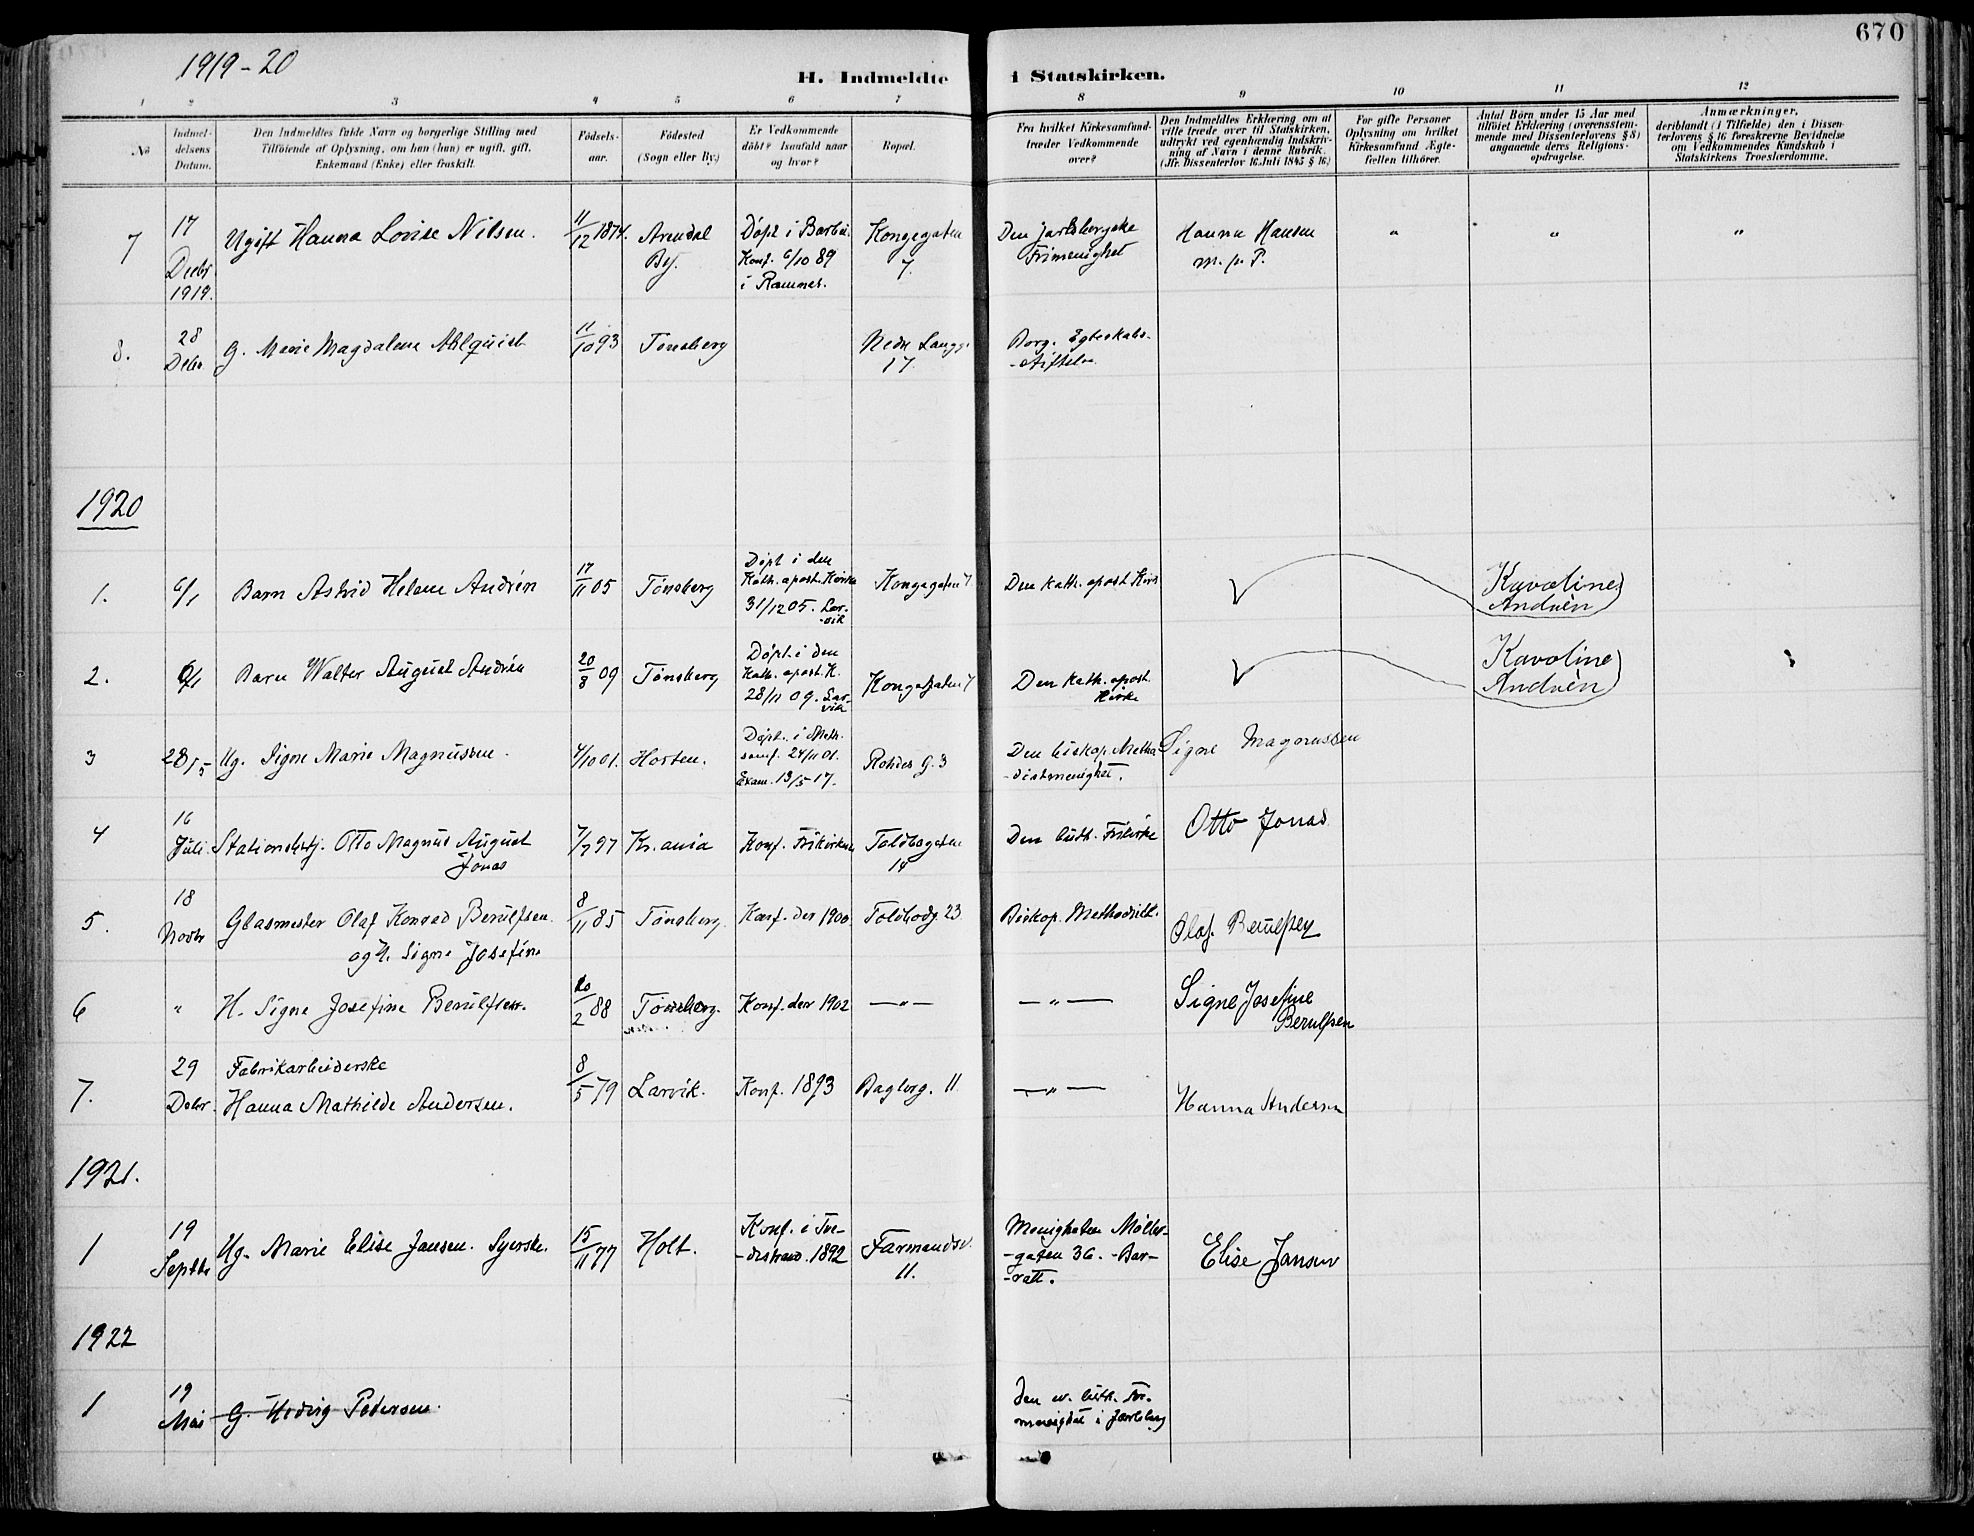 670
1919-20
H. Indmeldte i Statskirken.
1 2 3 4 5 6 7 8 9 10 11 12
No
Indmel-
delsens
Datum.
Den Indmeldtes fulde Navn og borgerlige Stilling med
Tilföiende af Oplysning, om han (hun) er ugift, gift,
Enkemand (Enke) eller fraskilt.
Födsels-
aar.
Födested
(Sogn eller By.)
Er Vedkommende
döbt? Isaafald naar
og hvor?
Bopæl.
Fra hvilket Kirkesamfund
træder Vedkommende
over?
Den Indmeldtes Erklæring om at
ville træde over til Statskirken,
udtrykt ved egenhændig Indskriv-
ning af Navn i denne Rubrik.
(Jfr. Dissenterlov 16. Juli 1845 § 16.)
For gifte Personer
Oplysning om hvilket
Kirkesamfund Ægte-
fællen tilhörer.
Antal Börn under 15 Aar med
tilföiet Erklæring (overensstem-
mende med Dissenterlovens § 8)
angaaende deres Religions-
opdragelse.
Anmærkninger,
deriblandt (i Tilfælde) den i Dissen-
terlovens § 16 foreskrevne Bevidnelse
om Vedkommendes Kundskab i
Statskirkens Troeslærdomme.
7
17
Decbr.
1919.
Ugift Hanna Lovise Nilsen.
11/12 1874.
Arendal
By.
Döpt i Barbu.
Konf. 6/10 89
i Ramnes.
Kongegaten
7.
Den jarlsbergske
Frimenighet
Hanna Hansen
m. p. P.
"
"
"
8.
28
Debr.
G. Marie Magdalena Ahlquist
11/10 93
Tönsberg
Nedre Langg.
17.
Borg. Egteskabs-
-stiftelse.
1920
1.
6/1
Barn Astrid Helene Andrén
17/11 05
Tönsberg
Döpt i den
Kath. apost. Kirke
31/12 05. Lar-
-vik
Kongegaten 7.
Den kath. apost Kirk
Karoline
Andrèn
2.
6/1
Barn Walter August Andrén
20/8 09
Tönsberg
Döpt. i den
Kath. apost. K.
28/11 09. Lar-
vik
Kongegaten 7
Den kath. apost.
Kirke
Karoline
Andrèn
3
28/5
Ug. Signe Marie Magnussen.
4/10 01.
Horten.
Döpt. i Meth.
samf. 24/11 01.
Exam. 13/5 17.
Rohdes G. 3
Den biskop. Metho
-distmenighet.
Signe Magnussen
4
16
Juli
Stationsbetj. Otto Magnus August
Jonas
7/7 97
Kr.ania
Konf. Frikirken
Toldbogaten
14
Den luth. Frikirke
Otto Jonas
5.
18
Novbr
Glasmester Olaf Konrad Berulfsen
og H. Signe Josefine
8/11 85
Tönsberg.
Konf. der 1900
Toldbodg 23
Biskop. Methodistk.
Olaf. Berulfsen
6
"
H. Signe Josefine Berulfsen.
20/2 88
Tönsberg.
Konf. der 1902
—"—
—"—
Signe Josefine
Berulfsen
7.
29
Debr.
Fabrikarbeiderske
Hanna Mathilde Andersen.
8/5 79
Larvik.
Konf. 1893
Baglerg. 11
—"—
Hanna Andersen
1921.
1
19
Septbr
Ug. Marie Elise Jansen. Syerske.
15/11 77
Holt.
Konf. i Tve-
-destrand. 1892
Farmandsv.
11.
Menigheten Möller-
-gaten 36. -Bar-
-ratt.
Elise Jansen
1922
1
19
Mai
G. Hedvig Pedersen.
Den ev. luth. Fri-
menighet i Jarlsberg